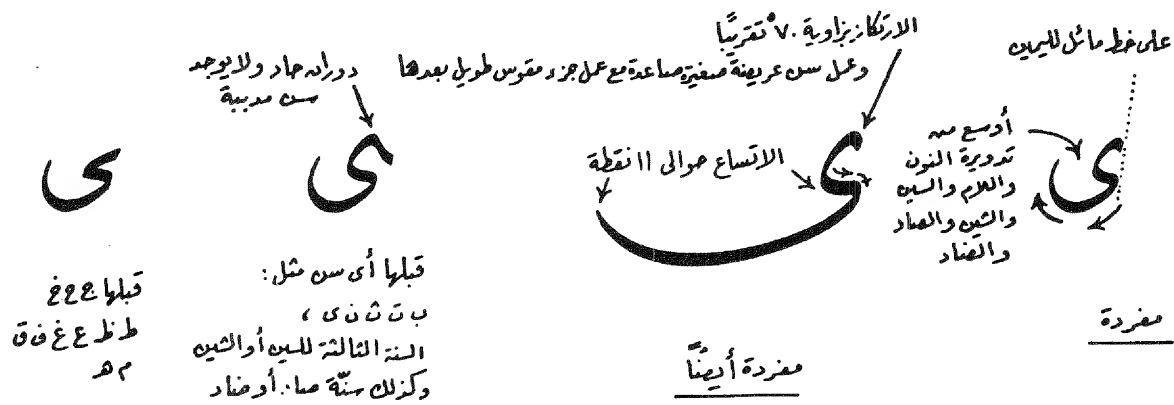 على خط مائل لليمين
ى
أوسع من
تدويرة النون
واللام والسين
والشين والصاد
والضاد
مفردة
الارتكاز بزاوية ٧٠° تقريبًا
وعمل سن عريضة صغيرة صاعدة مع عمل جزء مقوس طويل بعدها
ى
الاتساع حوالى ١١ نقطة
مفردة أيضًا
دوران حاد ولا يوجد
سن مدببة
ى
قبلها أى سن مثل:
ب ت ث ن ى ،
السنة الثالثة للسين أو الشين
وكذلك سنّة صاد أو ضاد
ى
قبلها ج ح خ
ط ظ ع غ ف ق
م هـ